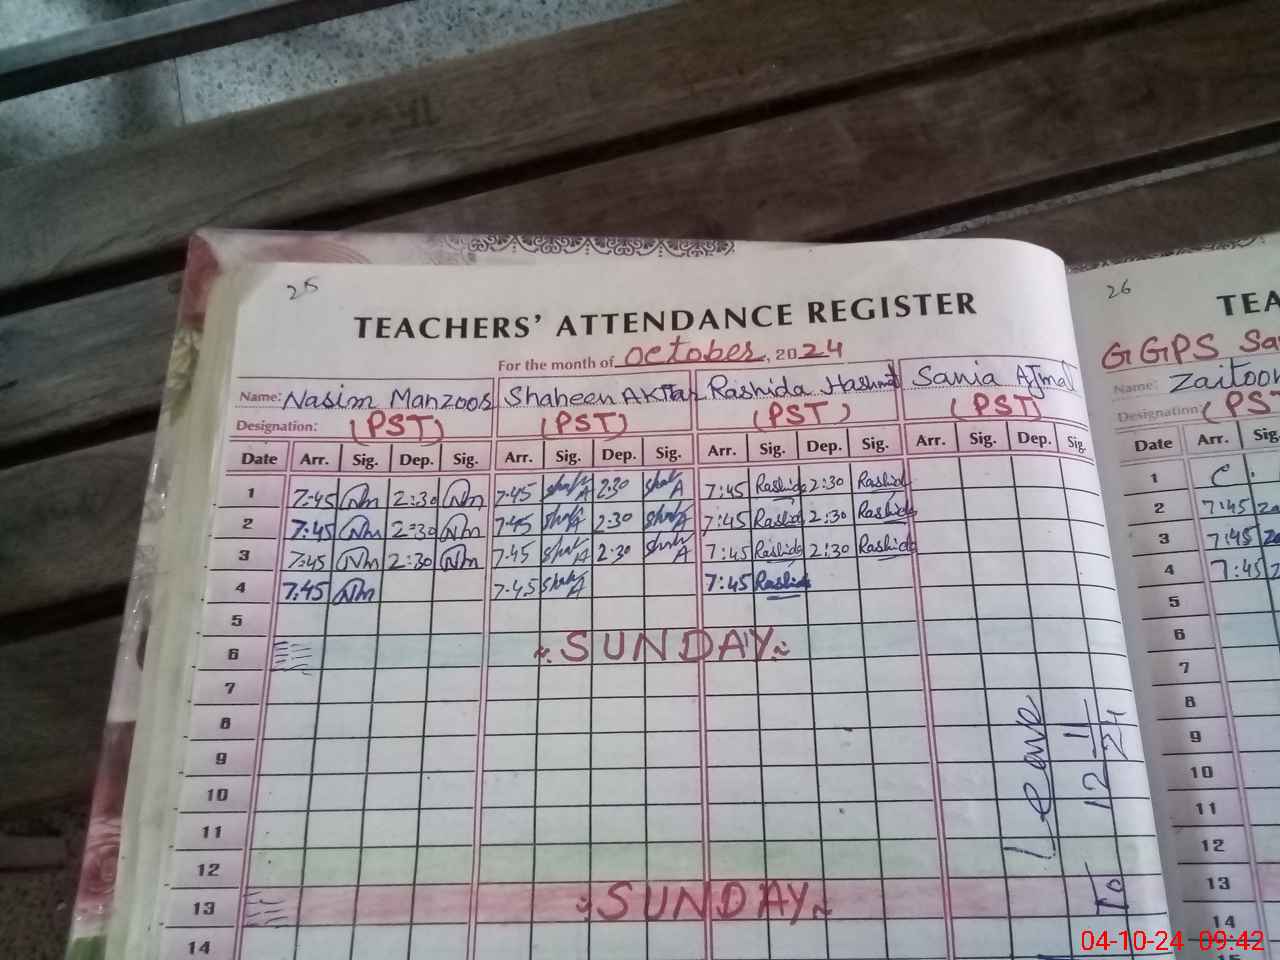 25
TEACHERS' ATTENDANCE REGISTER
For the month of October, 2024
Name: Nasim Manzoos Shaheen AKHtar Rashida Hashmat Sania Ajmal
Designation: (PST) (PST) (PST) (PST)
Date Arr. Sig. Dep. Sig. Arr. Sig. Dep. Sig. Arr. Sig. Dep. Sig. Arr. Sig. Dep. Sig.
1 7:45 Nm 2:30 Nm 7:45 2:30 7:45 Rashida 2:30 Rashid
2 7:45 Nm 2:30 Nm 7:45 2:30 7:45 Rashid 2:30 Rashida
3 7:45 Nm 2:30 Nm 7:45 2:30 7:45 Rashida 2:30 Rashida
4 7:45 Nm 7:45 7:45 Rashida
5
6 SUNDAY
7
8
9
10
11
12
13 SUNDAY
14
Leave
To 12 11 24
26
TEA
GGPS Sa
Name: Zaitoon
Designation: (PST
Date Arr. Sig.
1 C.
2 7:45
3 7:45
4 7:45
5
6
7
8
9
10
11
12
13
14
15
04-10-24 09:42